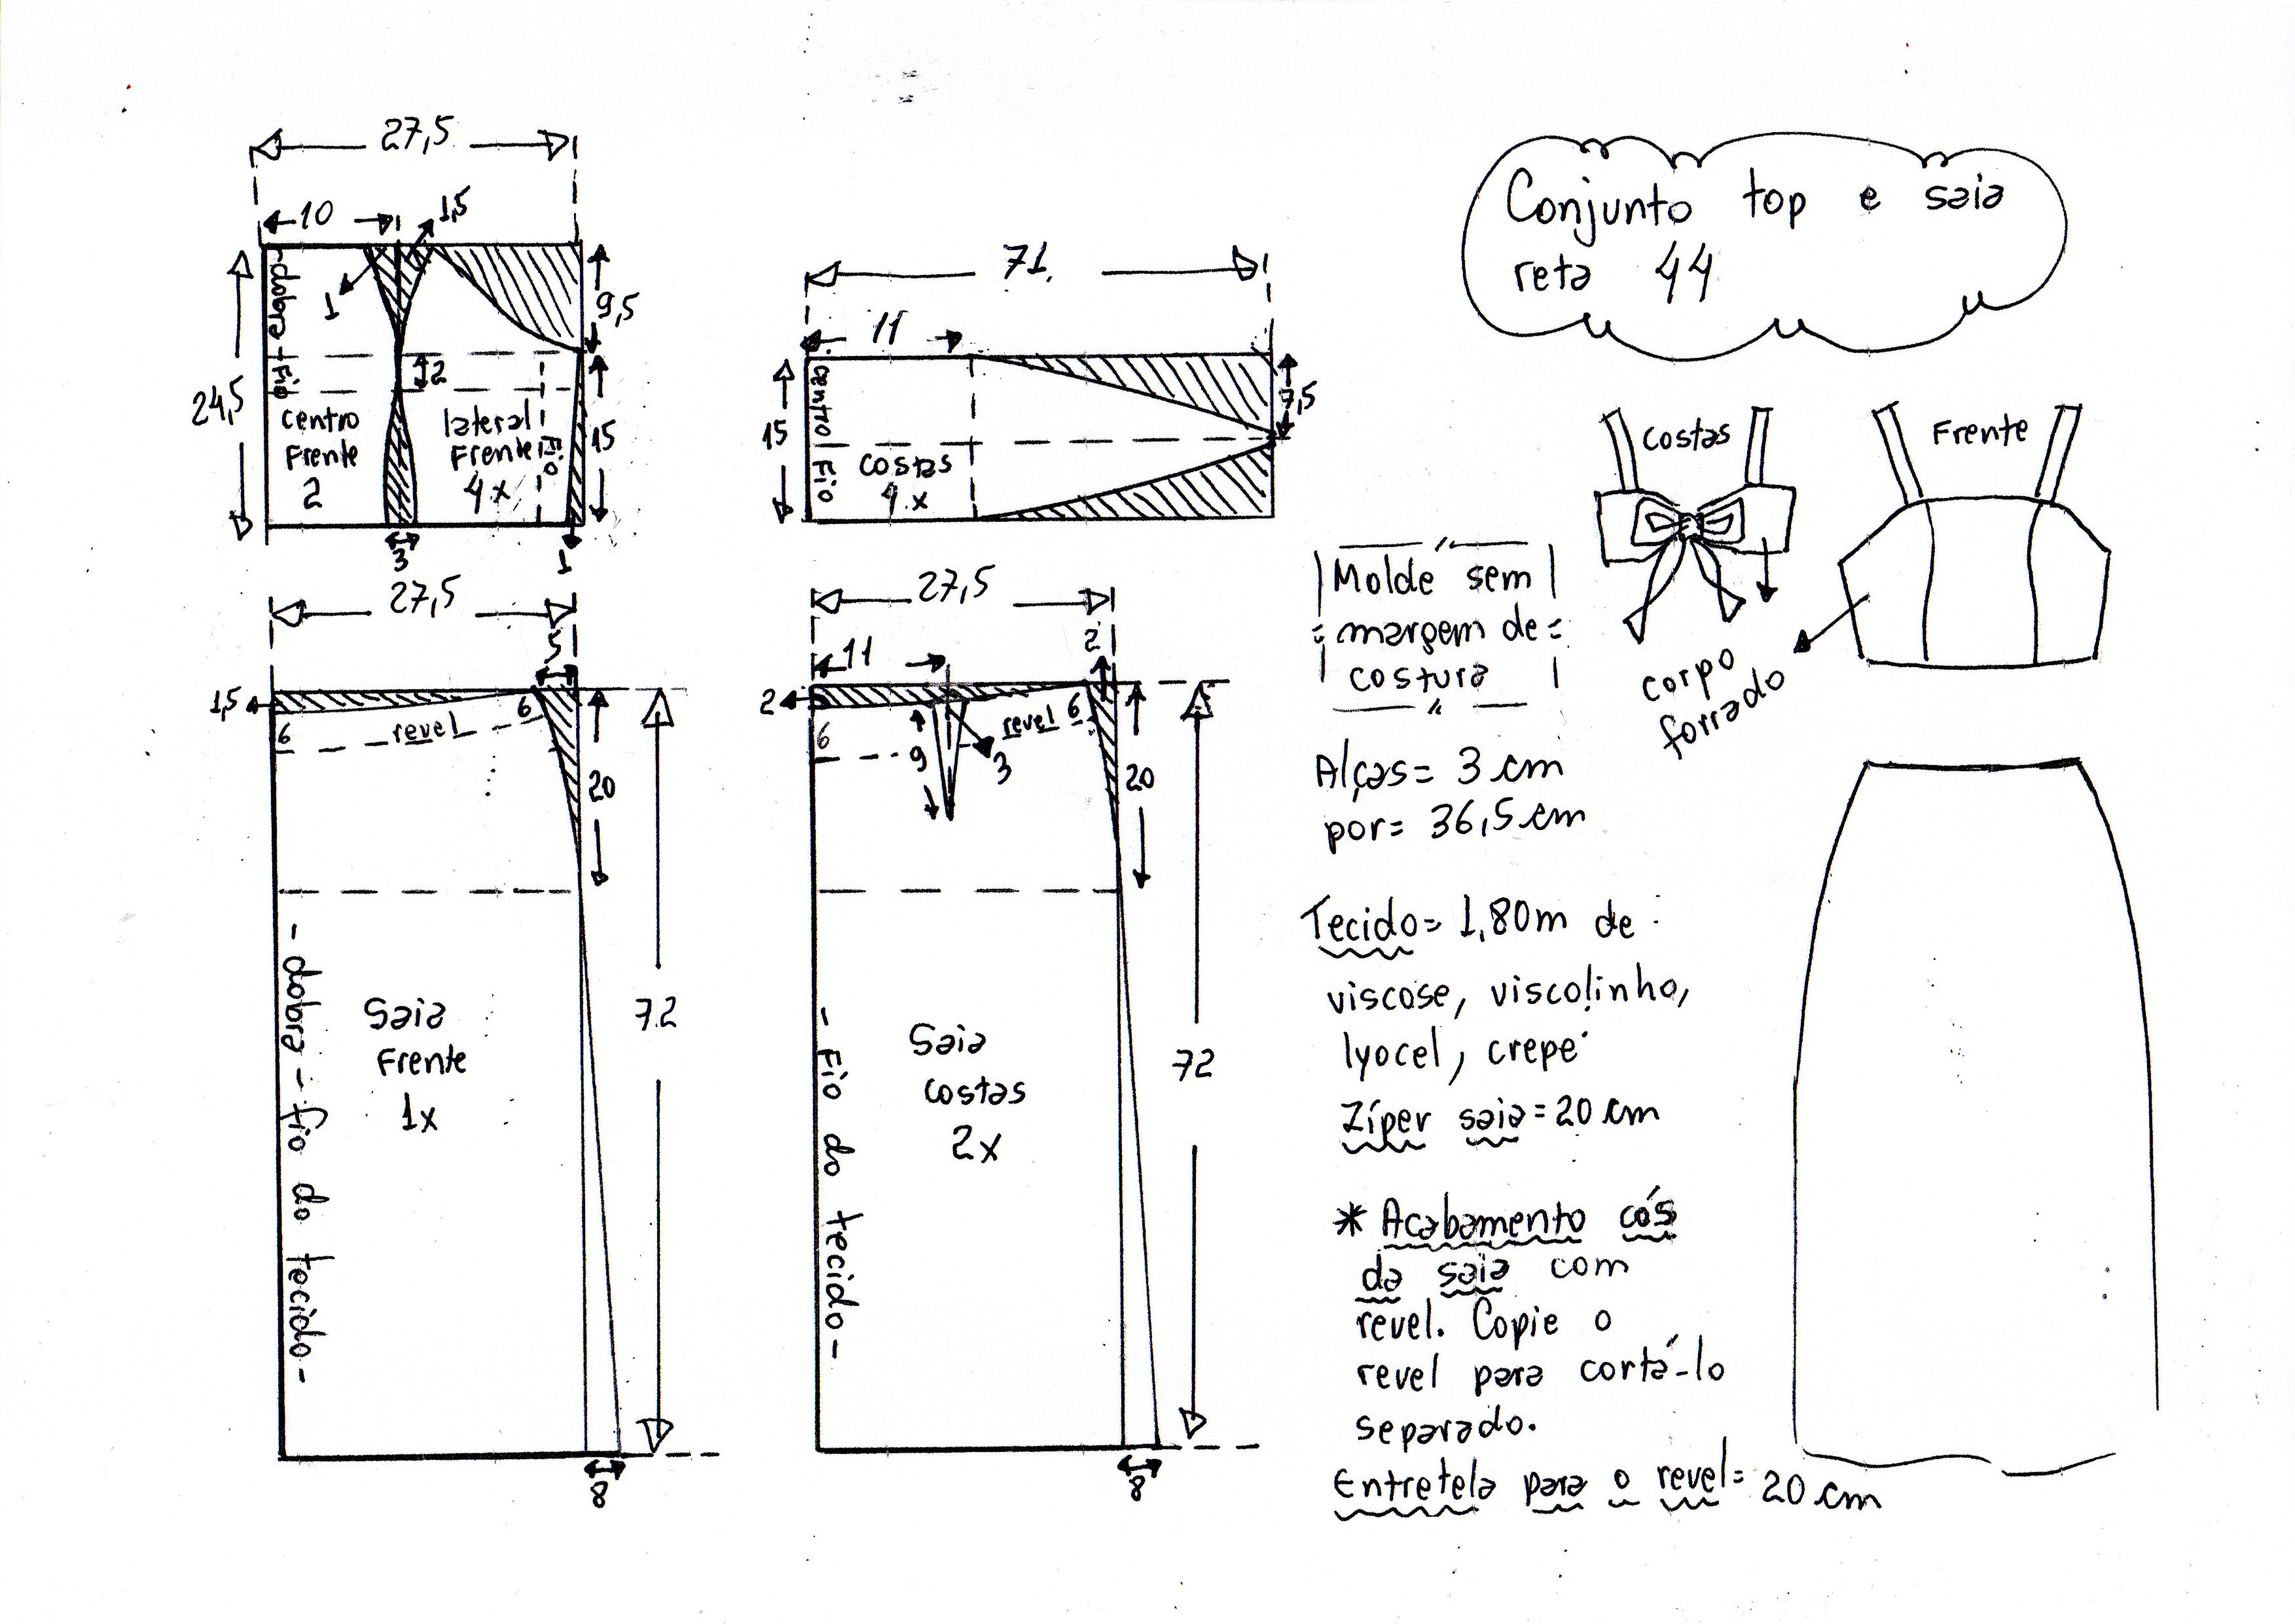 Conjunto top e saia
reta 44
27,5
10
1,5
1
9,5
dobra-fio
2
24,5
centro
Frente
2
lateral
Frente
4x
fio
15
3
1
71.
11
15
centro fio
costas
4x
7,5
27,5
5
1,5
6
revel
6
20
72
- dobra - fio do tecido -
Saia
Frente
1x
8
27,5
11
2
2
6
revel 6
9
3
20
72
- Fio do tecido -
Saia
costas
2x
8
Costas
Frente
corpo
forrado
Molde sem
margem de
costura
Alças= 3 cm
por= 36,5 cm
Tecido= 1,80m de
viscose, viscolinho,
lyocel, crepe
Zíper saia=20 cm
* Acabamento cós
da saia com
revel. Copie o
revel para cortá-lo
separado.
Entretela para o revel= 20 cm